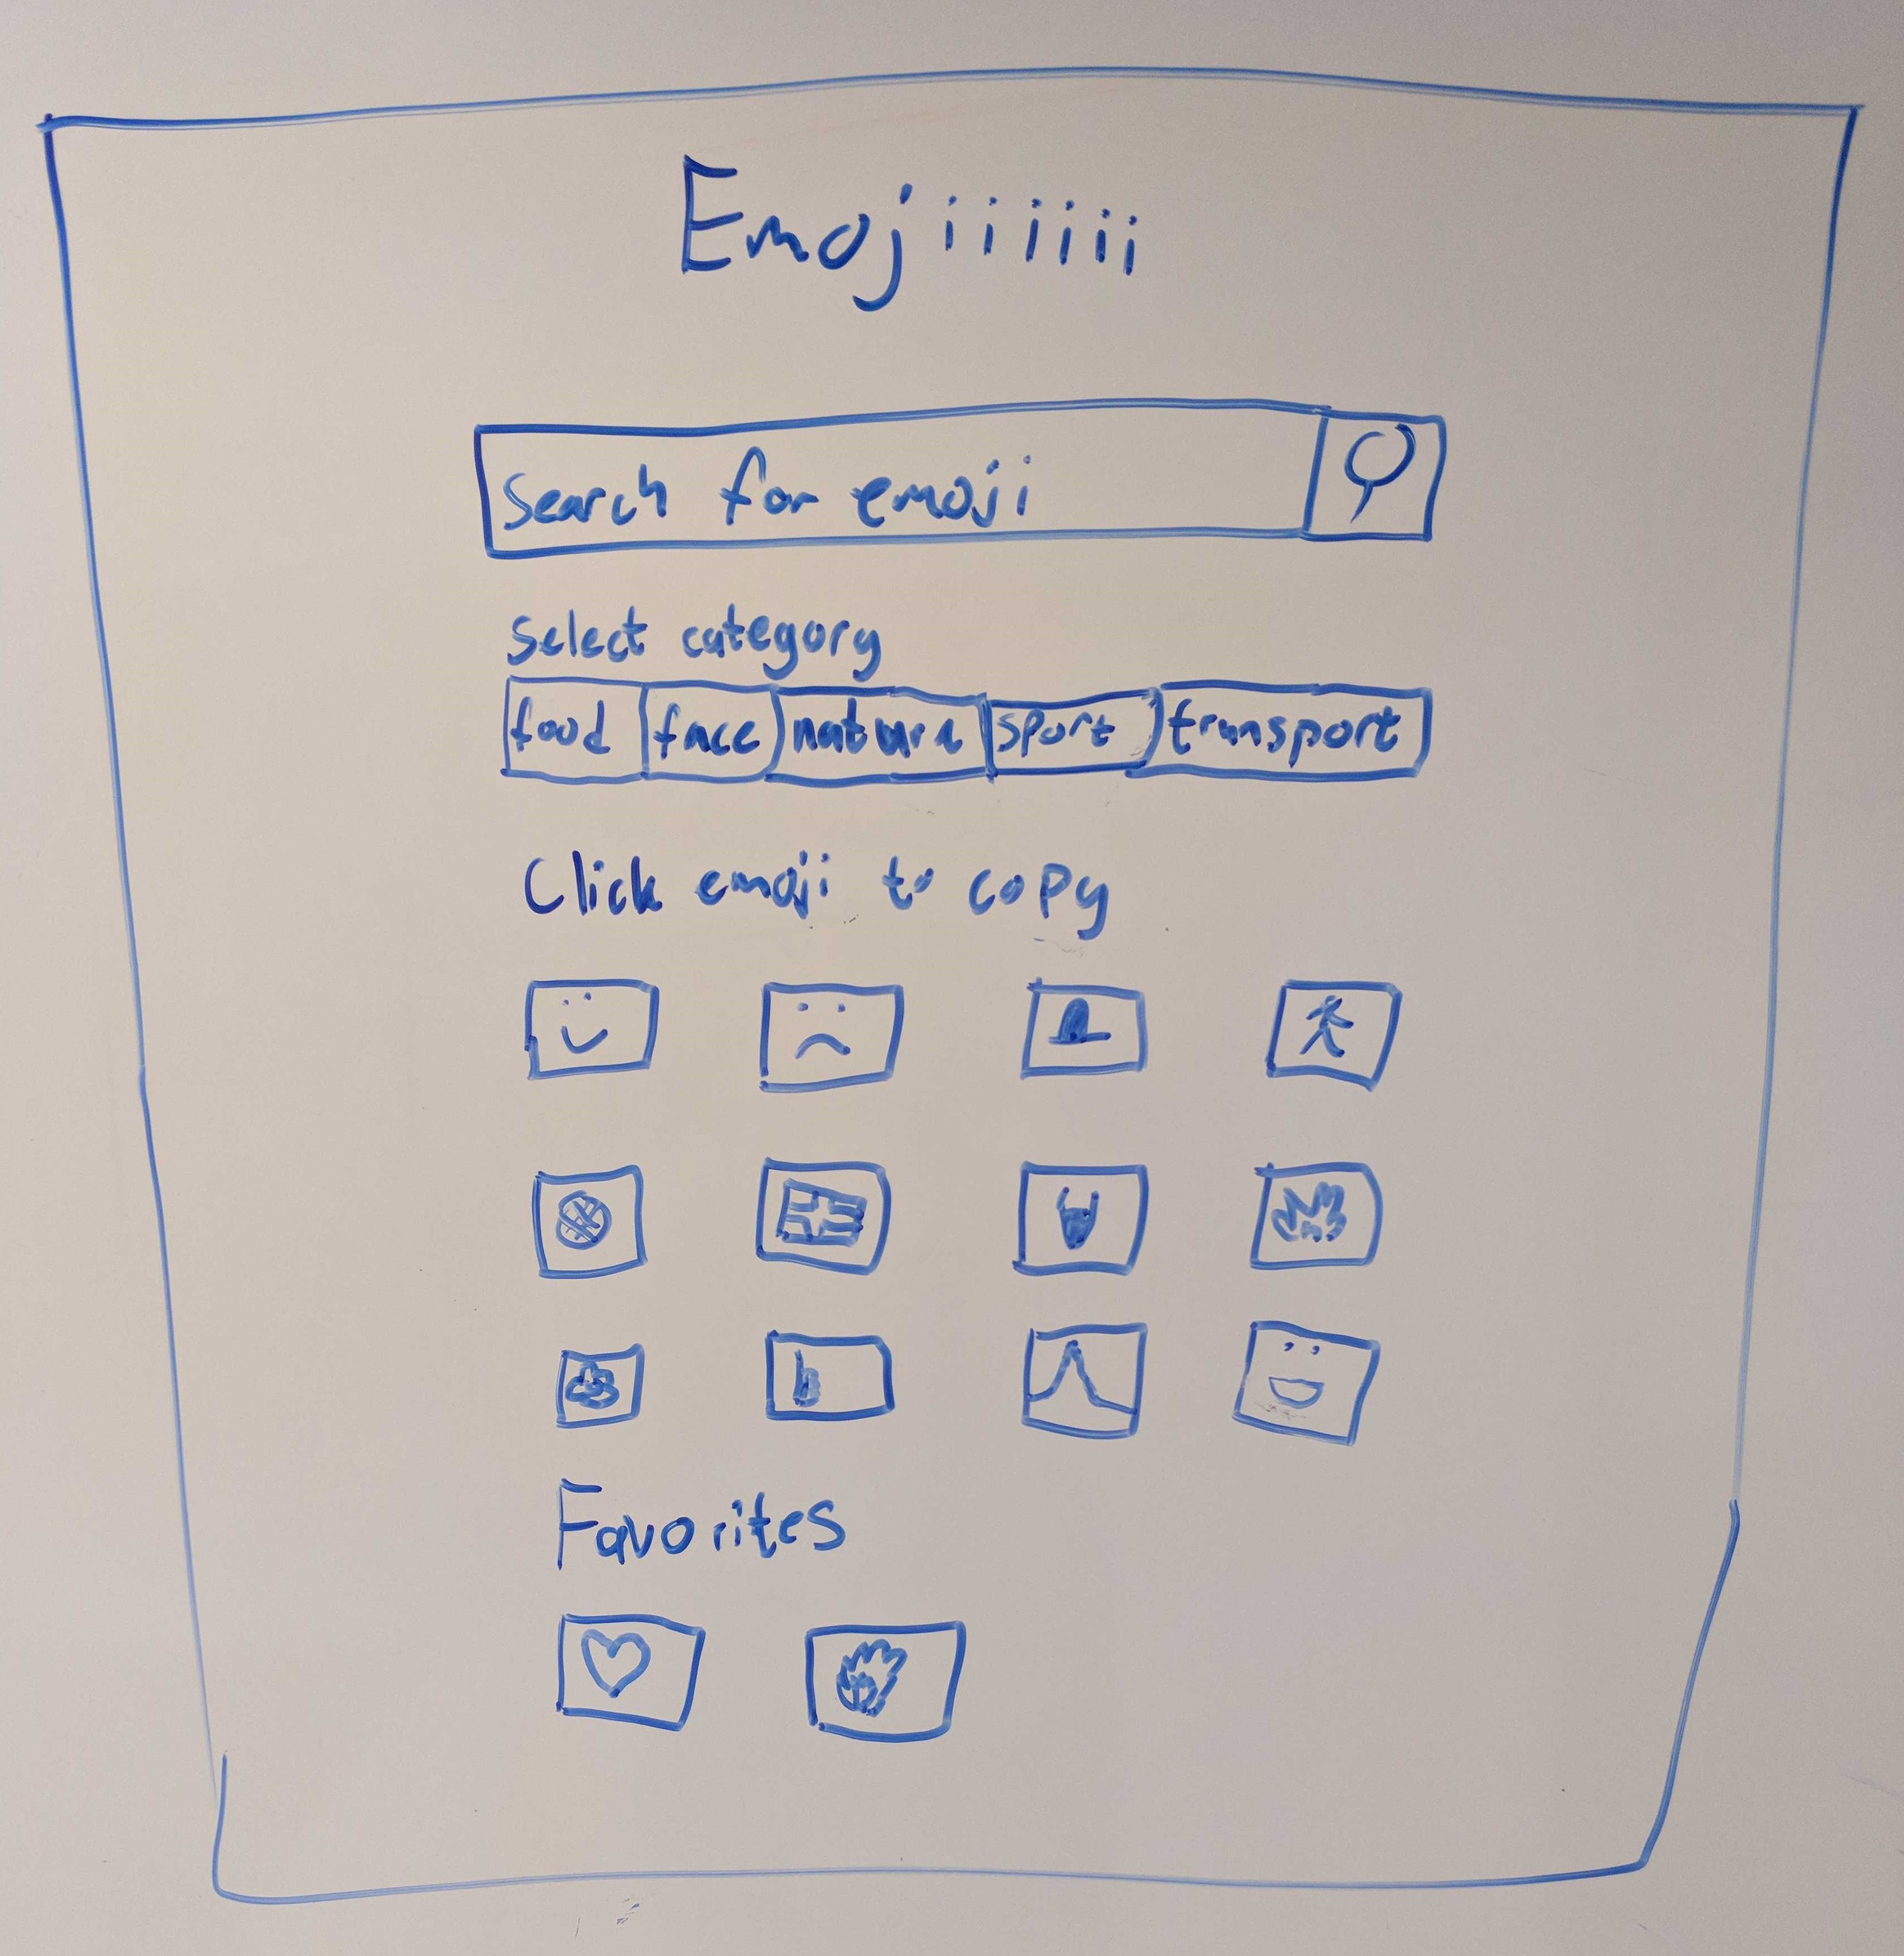 Emojiiiiiii
Search for emoji
Select category
food face nature sport transport
Click emoji to copy
Favorites